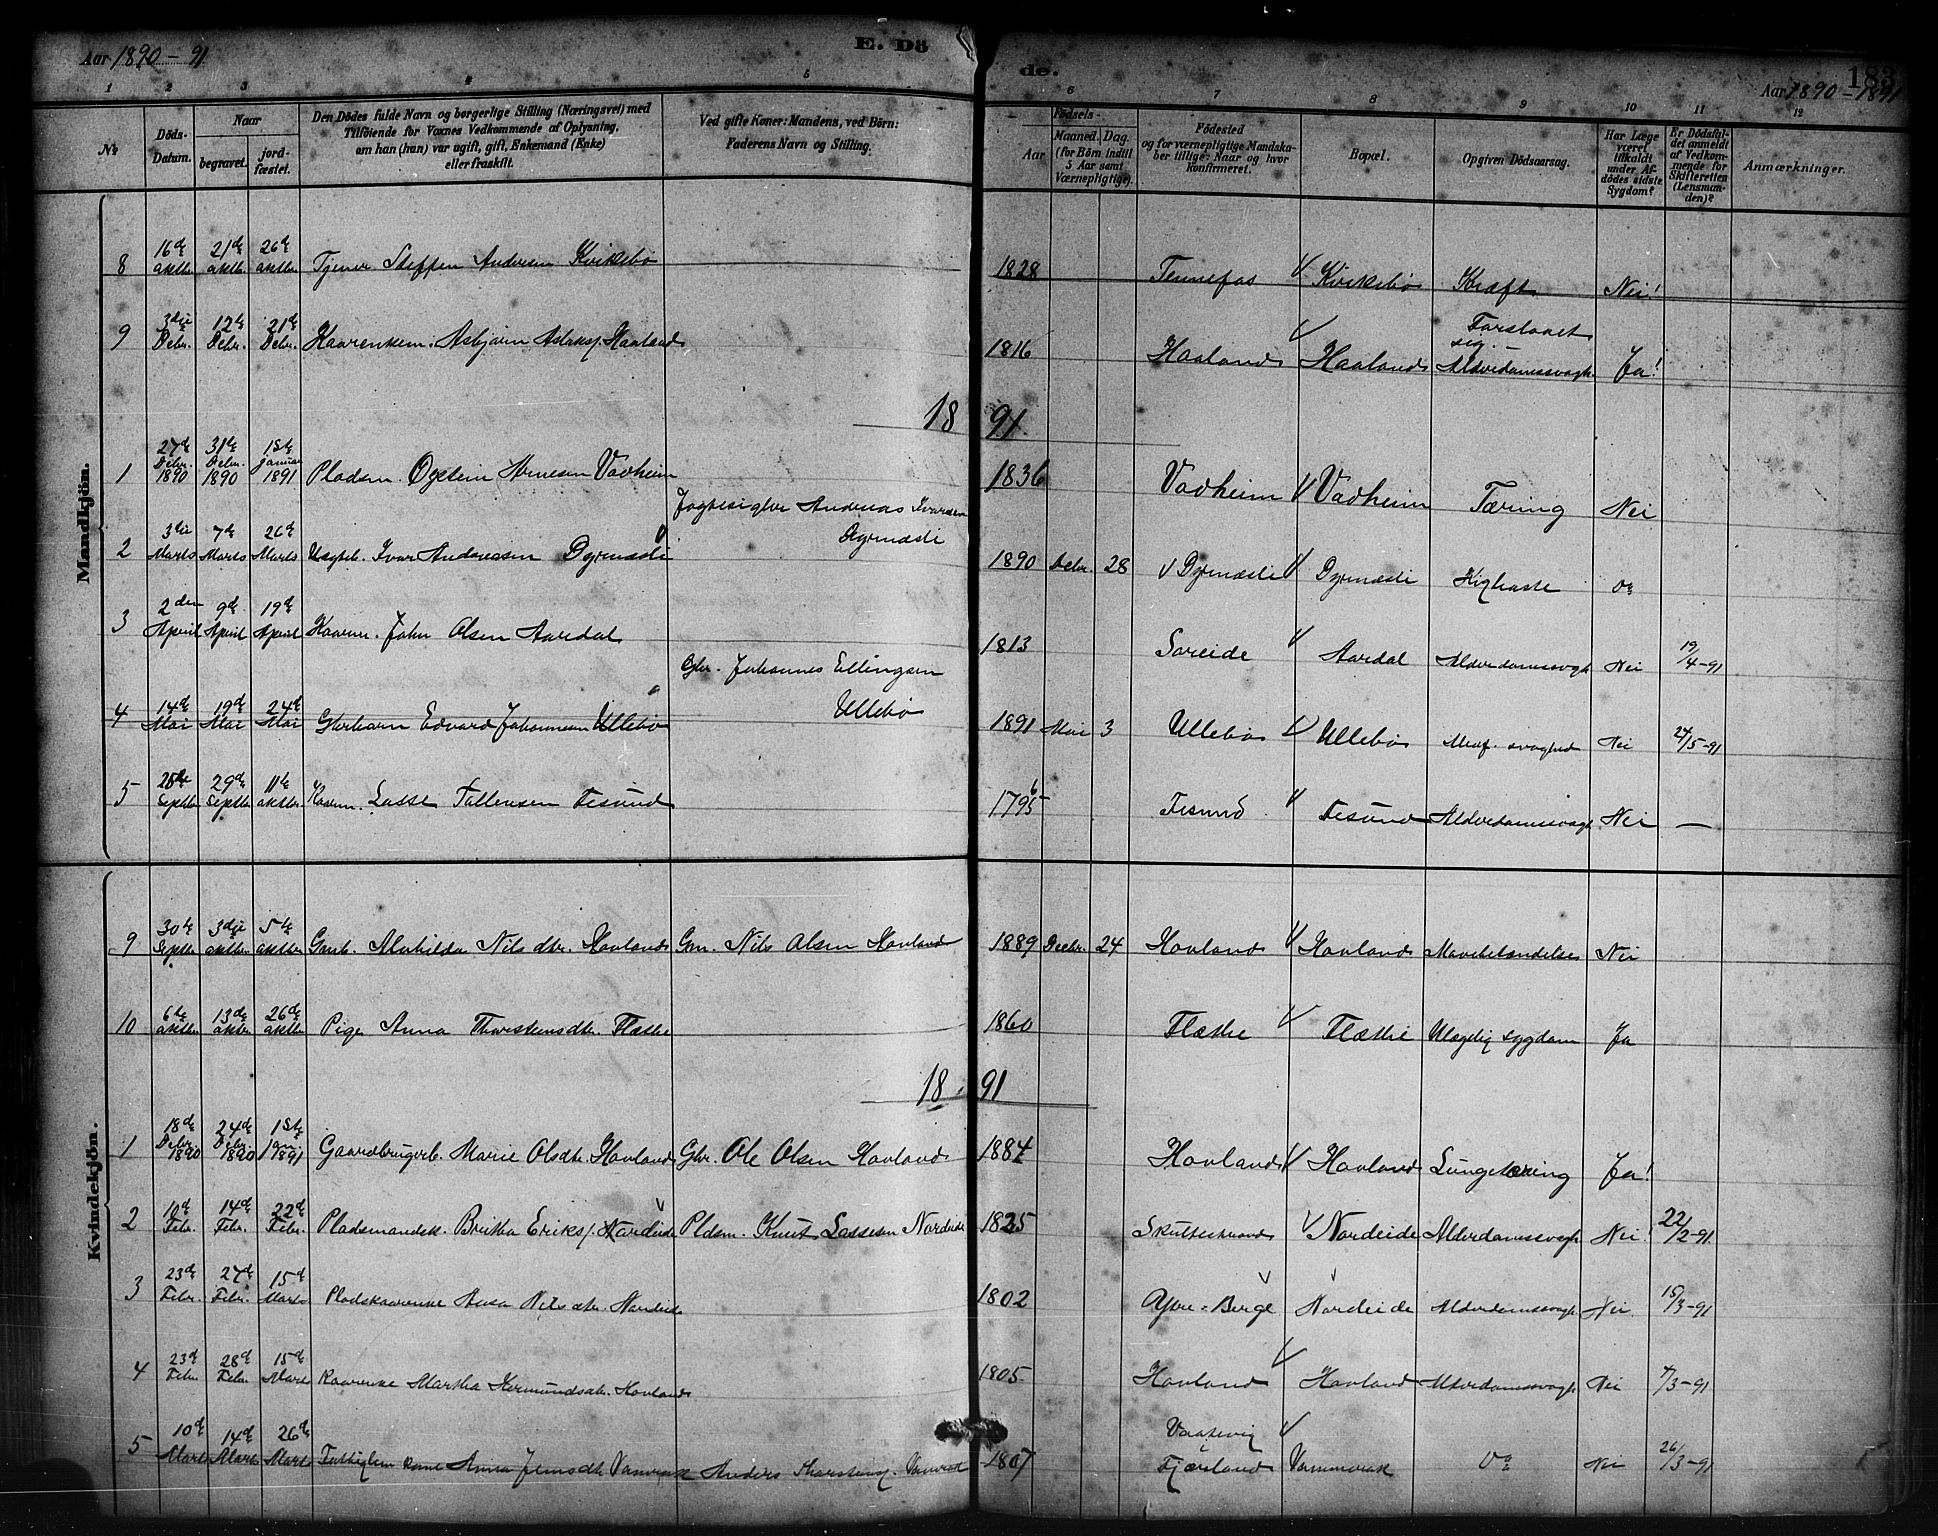 Aar 1890 – 91
E. Dö
de.
183
Aar 1890 – 1891
1 2 3 4 5 6 7 8 9 10 11 12
№
Döds-Datum.
Naar
begravet.
jord-fæstet.
Den Dödes fulde Navn og borgerlige Stilling (Næringsvei) med
Tilföiende for Voxnes Vedkommende af Oplysning,
om han (hun) var ugift, gift, Enkemand (Enke)
eller fraskilt.
Ved gifte Koner: Mandens, ved Börn:
Faderens Navn og Stilling.
Födsels-
Aar
Maaned. Dag.
(for Börn indtil
5 Aar samt
Værnepligtige).
Födested
og for værnepligtige Mandska-
ber tillige: Naar og hvor
konfirmeret.
Bopæl.
Opgiven Dödsaarsag.
Har Læge
været
tilkaldt
under Af-
dödes sidste
Sygdom?
Er Dödsfal-
det anmeldt
af Vedkom-
mende for
Skifteretten
(Lensman-
den)?
Anmærkninger.
Mandkjön.
8 16de oktbr. 21de oktb. 26de oktbr. Tjener Steffen Andersen Kvikebø 1828 Tennefos Kvikebø Kræft Nei!
9 3die Debr. 12te Debr. 21de Debr. Kaarenkem. Asbjørn Aslaksj. Haaland 1816 Haaland Haaland Forslaaet sig. – Alderdomssvagh. Ja!
18 91.
1 27de Debr. 1890 31te Debr. 1890 1ste Januar 1891 Pladsm. Øystein Arnesen Vadheim 1836 Vadheim Vadheim Tæring Nei
2 3die Marts 7de Marts 26de Marts Ivar Andreasen Dyrnæsli Andreas Ivarsen Dyrnæsli 1890 Debr. 28 Dyrnæsli Dyrnæsli Kighoste do
3 2den April 9de April 19de April Kaarm. John Olsen Aardal 1813 Søreide Aardal Alderdomssvagh. Nei 19/4-91
4 14de Mai 19de Mai 24de Mai Gbrbarn Edvard Johannesen Ullebø Gbr. Johannes Ellingsen Ullebø 1891 Mai 3 Ullebø Ullebø Medf. svaghed Nei 24/5-91
5 Septbr 29de Septbr 11te oktbr Kaarm. Lasse Tollevsen Tesund 1795 6 Tesund Tesund Alderdomssvagh. Nei —
Kvindekjön.
9 30te Septbr 3die oktbr 5te oktbr Gmb. Mathilda Nils dtr. Hovland Gm. Nils Olsen Hovland 1889 Decbr. 24 Hovland Hovland Mavebetændelse Nei
10 6te oktbr 13de oktbr 26de oktbr Pige Anna Thorstensdtr. Flæthe 1860 Flæthe Flæthe Ulægelig sygdom Ja
18 91
1 18de Debr. 1890 24de Debr. 1890 1ste Jan. 1891 Gaardbrugerb. Marie Olsdtr. Hovland Gbr. Ole Olsen Hovland 1884 Hovland Hovland Lungetæring Ja!
2 10de Febr. 14de Febr. 22de Febr. Pladsmandsk. Brithe Eriksj. Nordeide Pldsm. Knut Lassesen Nordeide 1825 Skuttestrand Nordeide Alderdomssvagh Nei! 22/2-91
3 23de Febr. 27de Febr. 15de Marts Pladskaarenke Nilsdtr. Nordeide 1802 Ytre-Berge Nordeide Alderdomssvagh Nei 15/3-91
4 23d Febr. 28de Febr. 15de Marts Kaarenke Martha Hovland 1805 Hovland Hovland Alderdomssvagh Nei 7/3-91
5 10de Marts 14de Marts 26de Marts Fattiglem Anna Jensdtr. Anders 1807 Fjærland do Nei 26/3-91